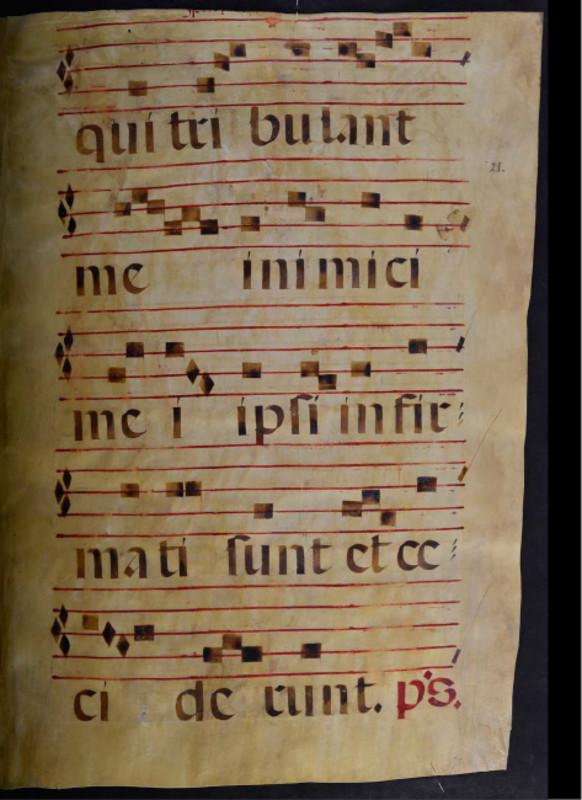 qui tri bulant
21.
me inimici
me i ipsi infir
mati sunt et ce
ci de runt. ps.